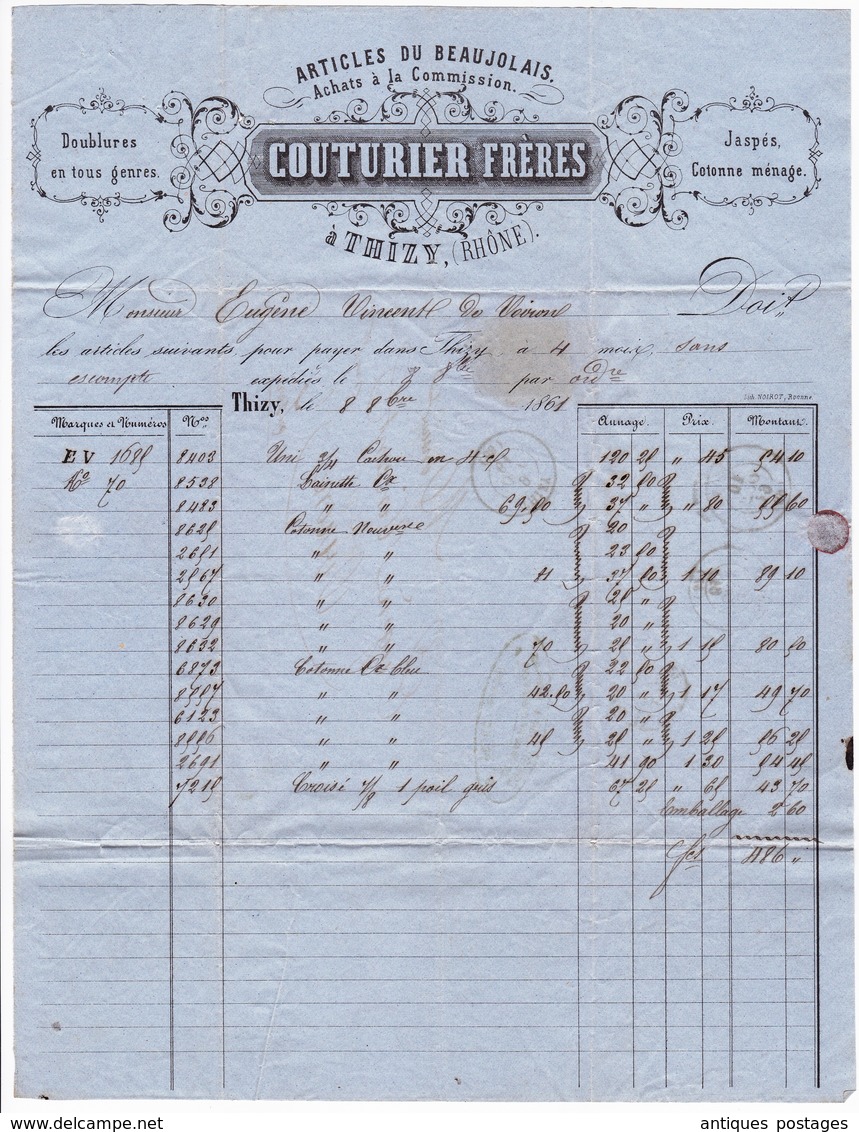 ARTICLES DU BEAUJOLAIS.
Achats à la Commission.
Doublures
en tous genres.
COUTURIER FRÈRES
Jaspés,
Cotonne ménage.
à THIZY, (RHÔNE).
Monsieur Eugène Vincent de Voiron Doit
les articles suivants, pour payer dans Thizy à 4 mois, sans
escompte expédiés le 8 8bre par ordre
Lith. NOIROT, Roanne
Thizy, le 8 8bre 1861
Marques et Numéros Nos. Aunage. Prix. Montant.
EV 1685 8403 Uni 3/4 en 4 120 25 " 45 54 10
No 70 8538 32 50
8483 " " 69.50 37 " " 80 55 60
8625 Cotonne 20
2651 " " 23 50
2567 " " 81 37 50 1 10 89 10
8630 " " 25 "
8629 " " 20 "
8632 " " 70 25 " 1 15 80 50
6873 Cotonne bleu 22 50
8557 " " 42.50 20 " 1 17 49 70
6123 " " 20 "
8556 " " 45 25 " 1 25 56 25
2691 " " 41 90 1 30 54 45
7215 Croisé 7/8 1 poil gris 67 25 " 65 43 70
Emballage 2 60
fcs 486 "
antiques postages